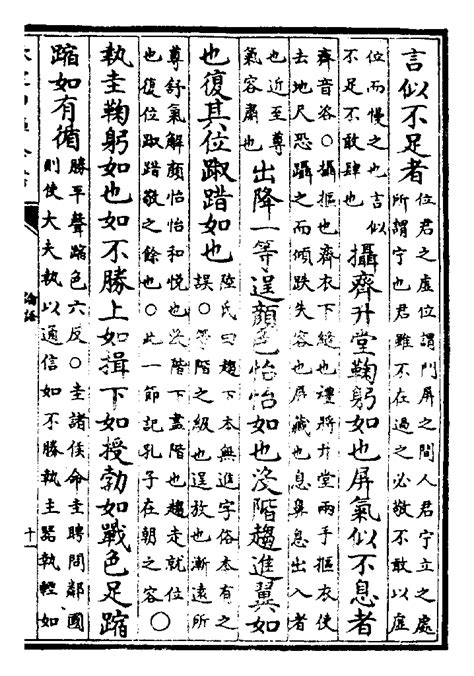 言似不足者
位君之虛位謂門屏之間人君宁立之處
所謂宁也君雖不在過之必敬不敢以虛
位而慢之也言似
不足不敢肆也
攝齊升堂鞠躬如也屏氣似不息者
齊音咨○攝摳也齊衣下縫也禮將升堂兩手摳衣使
去地尺恐躡之而傾跌失容也屏藏也息鼻息出入者
也近至尊
氣容肅也
出降一等逞顏色怡怡如也沒階趨進翼如
也復其位踧踖如也
陸氏曰趨下本無進字俗本有之
誤○等階之級也逞放也漸遠所
尊舒氣解顏怡怡和悅也沒階下盡階也趨走就位
也復位踧踖敬之餘也○此一節記孔子在朝之容
○
執圭鞠躬如也如不勝上如揖下如授勃如戰色足蹜
蹜如有循
勝平聲蹜色六反○圭諸侯命圭聘問鄰國
則使大夫執以通信如不勝執主器執輕如
論語
十一